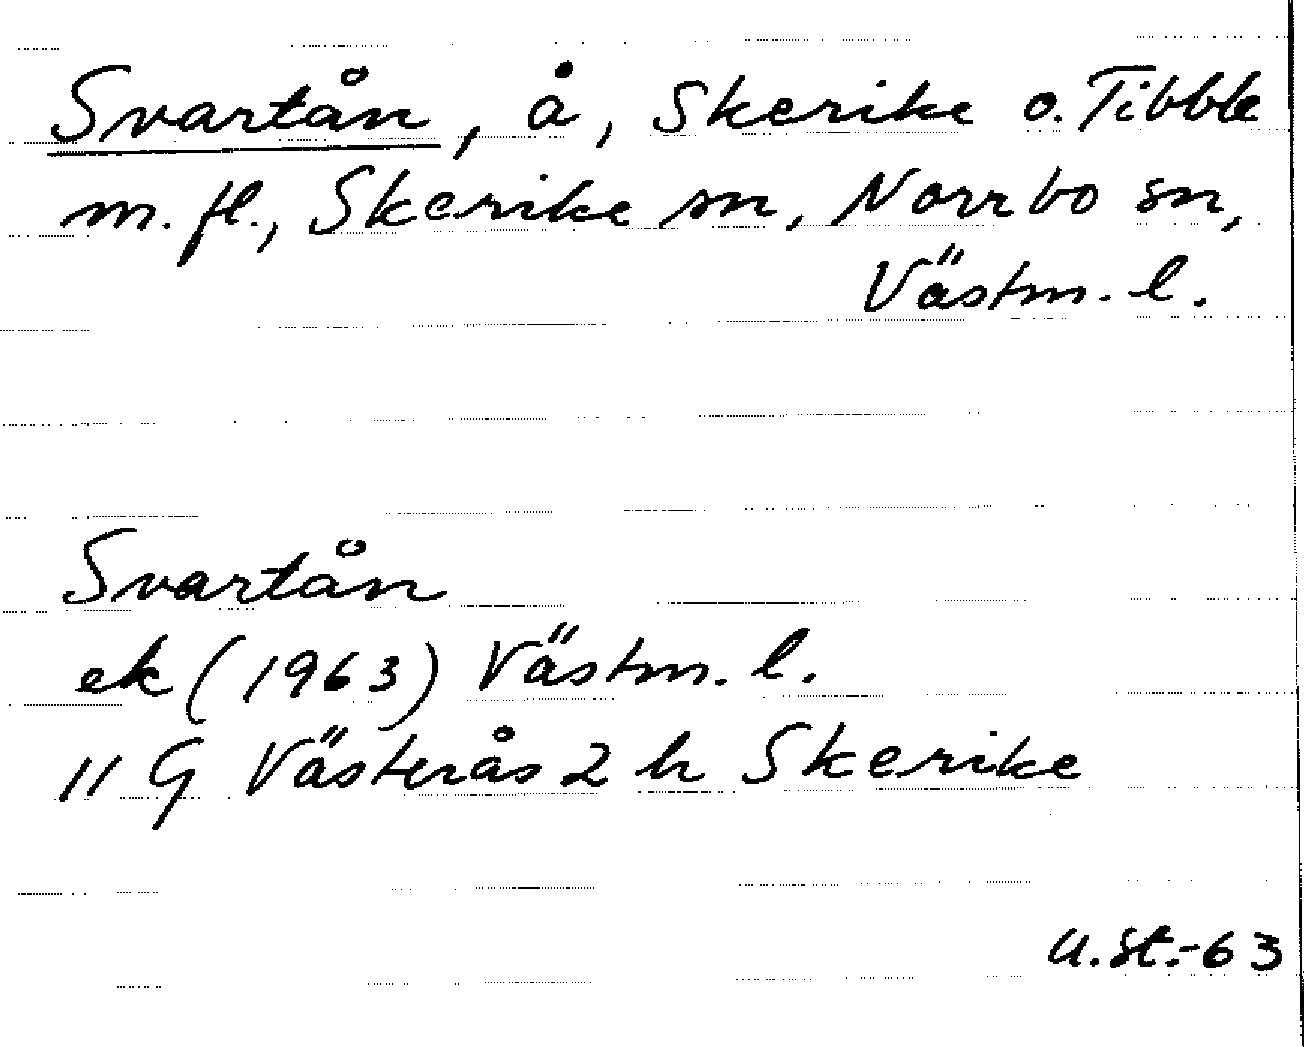 Svartån, å, Skerike o. Tibble
m. fl., Skerike sn, Norrbo sn,
Västm. l.
Svartån
ek (1963) Västm. l.
11 G Västerås 2 h Skerike
U.St.-63